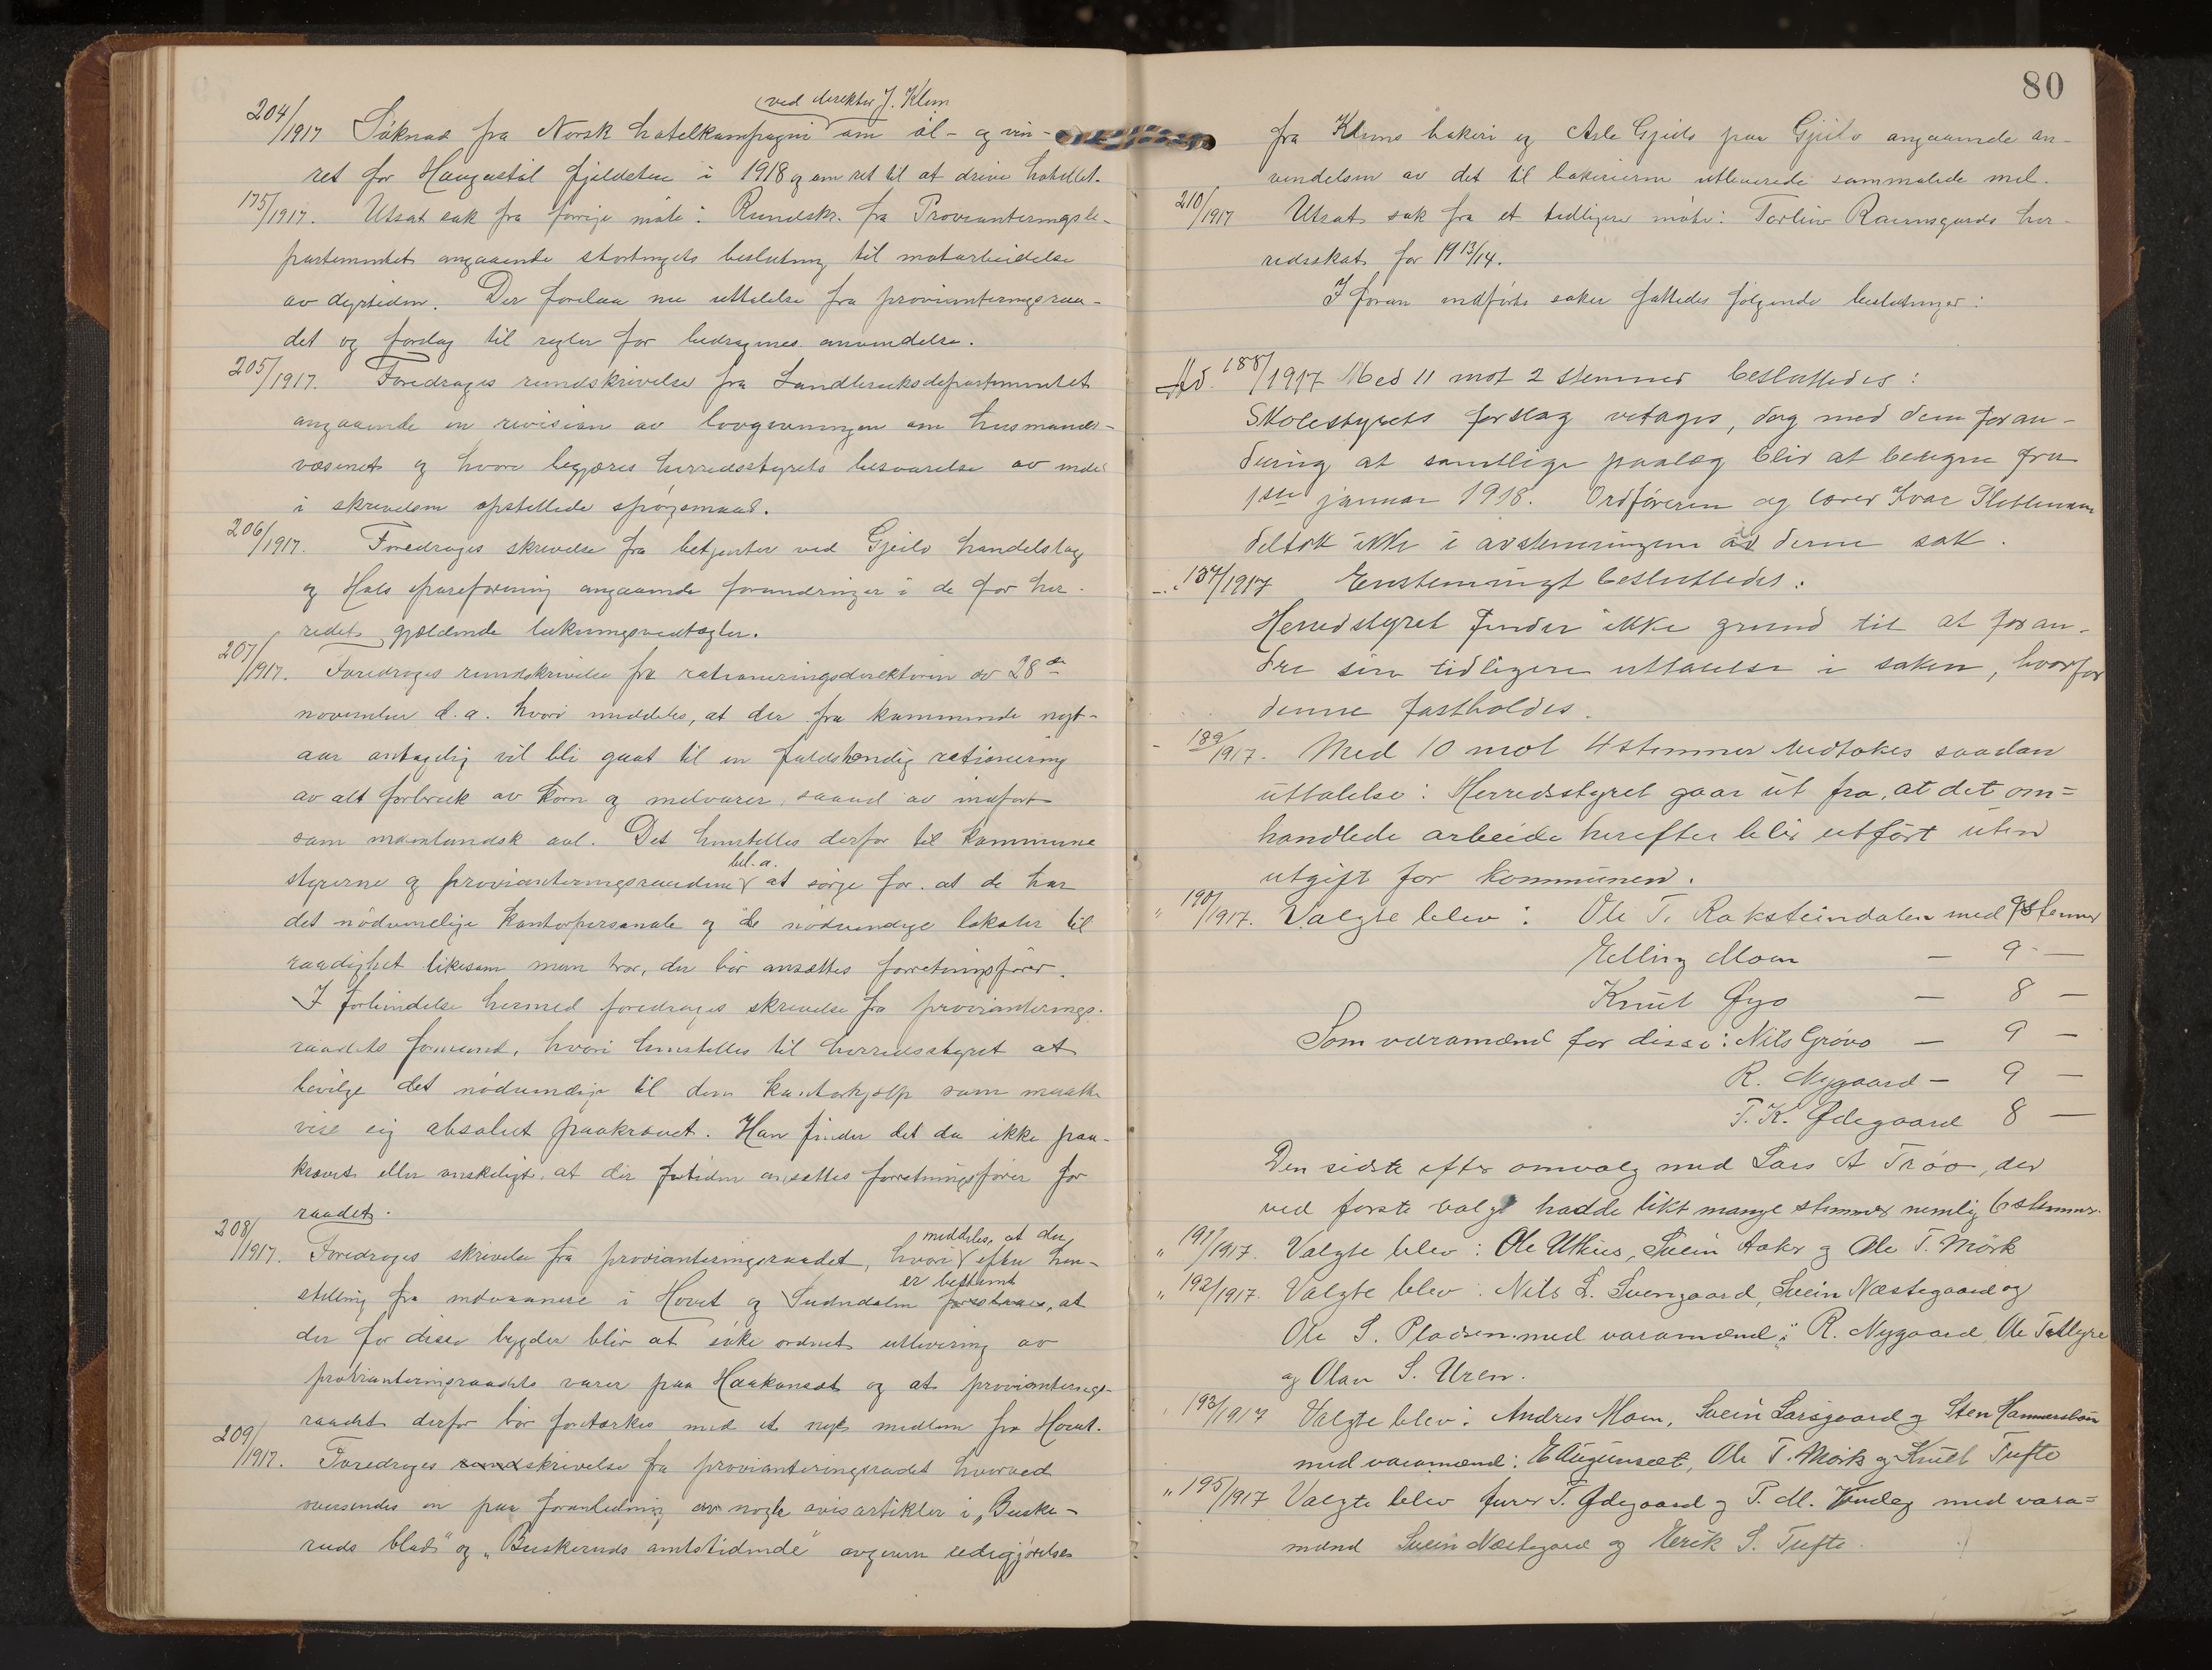 204/1917 Søknad fra Norsk hotelkompagni (ved direktør J. Klem om øl- og vin-
ret for Haugastøl fjeldstue i 1918 og om ret til at drive hotellet.
175/1917. Utsat sak fra forrige møte: Rundskr. fra Provianteringsde-
partementet angaaende stortingets beslutning til motarbeidelse
av dyrtiden. Der forelaa nu uttalelse fra provianteringsraa-
det og forslag til regler for bedragenes anvendelse.
205/1917. Foredrages rundskrivelse fra Landbruksdepartementet
angaaende en revision av lovgivningen om husmands-
væsenet og hvori begjæres herredsstyrets besvarelse av endel
i skrivelsen opstillede spørgsmaal.
206/1917. Foredrages skrivelse fra betjenter ved Geilo handelslag
og Hols spareforening angaaende forandringer i de for her-
redet gjældende lukningsvedtægter.
207/1917. Foredrages rundskrivelse fra rationeringsdirektøren av 28de
november d.a. hvori meddeles, at der fra kommende nyt-
aar antagelig vil bli gaat til en fuldstændig rationering
av alt forbruk av korn og melvarer, saavel av indført
som indenlandsk avl. Det henstilles derfor til kommune
styrerne og provianteringsraadene bl.a. at sørge for at de har
det nødvendige kontorpersonale og de nødvendige lokaler til
raadighet likesom man tror, der bør ansættes forretningsfører.
I forbindelse hermed foredrages skrivelse fra provianterings-
raadets formand, hvori henstilles til herredsstyret at
bevilge det nødvendige til den kontorhjælp som maatte
vise sig absolut paakrævet. Han finder det da ikke paa-
krævet eller ønskeligt, at der fortiden ansættes forretningsfører for
raadet.
208/1917. Foredrages skrivelse fra provianteringsraadet, hvori meddeles, at der efter hen-
stilling fra indvaanere i Hovet og Sudndalen er bestemt, at
der for disse bygder blir at søke ordnet utlevering av
provianteringsraadets varer paa Haakonset og at provianterings-
raadet derfor bør forsterkes med et nyt medlem fra Hovet.
209/1917. Foredrages rundskrivelse fra provianteringsraadet hvorved
oversendes en paa foranledning av nogle avisartikler i „Buske-
ruds blad" og „Buskeruds amtstidende" avgiven redegjørelse
80
fra Klems bakeri og Asle Gjeilo paa Gjeilo angaaende an-
vendelsen av det til bakerierne utleverede sammalede mel.
210/1917 Utsat sak fra et tidligere møte: Torleiv Raensgards her-
redsskat for 1913/14.
I foran indførte saker fattedes følgende beslutninger:
Ad. 188/1917 Med 11 mot 2 stemmer besluttedes:
Skolestyrets forslag vetages, dog med den foran-
dring at samtlige paalæg blir at beregne fra
1ste januar 1918. Ordføreren og lærer Ivar Slettemoen
deltok ikke i avstemningen av denne sak.
-„- 187/1917 Enstemmigt besluttedes:
Herredstyret finder ikke grund til at foran-
dre sin tidligere uttalelse i saken, hvorfor
denne fastholdes.
- 189/1917. Med 10 mot 4 stemmer vedtokes saadan
uttalelse: Herredsstyret gaar ut fra, at det om=
handlede arbeide herefter blir utført uten
utgift for kommunen.
„ 190/1917. Valgte blev: Ole T. Raksteindalen med 9 stemmer
Elling Moen — 9 —
Knut Øyo — 8 —
Som varamænd for disse: Nils Grøvo — 9 —
R. Nygaard — 9 —
T. K. Ødegaard 8 —
Den sidste efter omvalg med Lars A Trøo, der
ved første valg hadde likt mange stemmer nemlig 6 stemmer.
„ 191/1917. Valgte blev: Ole Uthus, Svein Aaker og Ole T. Mørk
„ 192/1917. Valgte blev: Nils L. Svengaard, Svein Næstegaard og
Ole S. Pladsen med varamænd: R. Nygaard, Ole
og Olav S. Uren.
193/1917 Valgte blev: Andres Moen, Svein Larsgaard og Sten Hammersbøen
med varamænd: E Augunset, Ole T. Mørk og Knut Tufte
„ 195/1917 Valgte blev T. Ødegaard og T. M. med vara=
mænd Svein Næstegaard og Eirik S. Tufte.